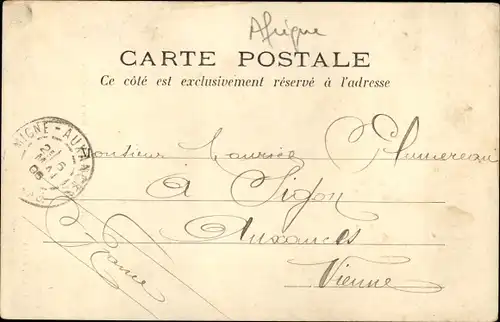 Afrique
CARTE POSTALE
Ce côté est exclusivement réservé à l'adresse
MIGNÉ-AUXANCES
Monsieur Maurice Plumereau
à Sigon
Auxances
Vienne
France